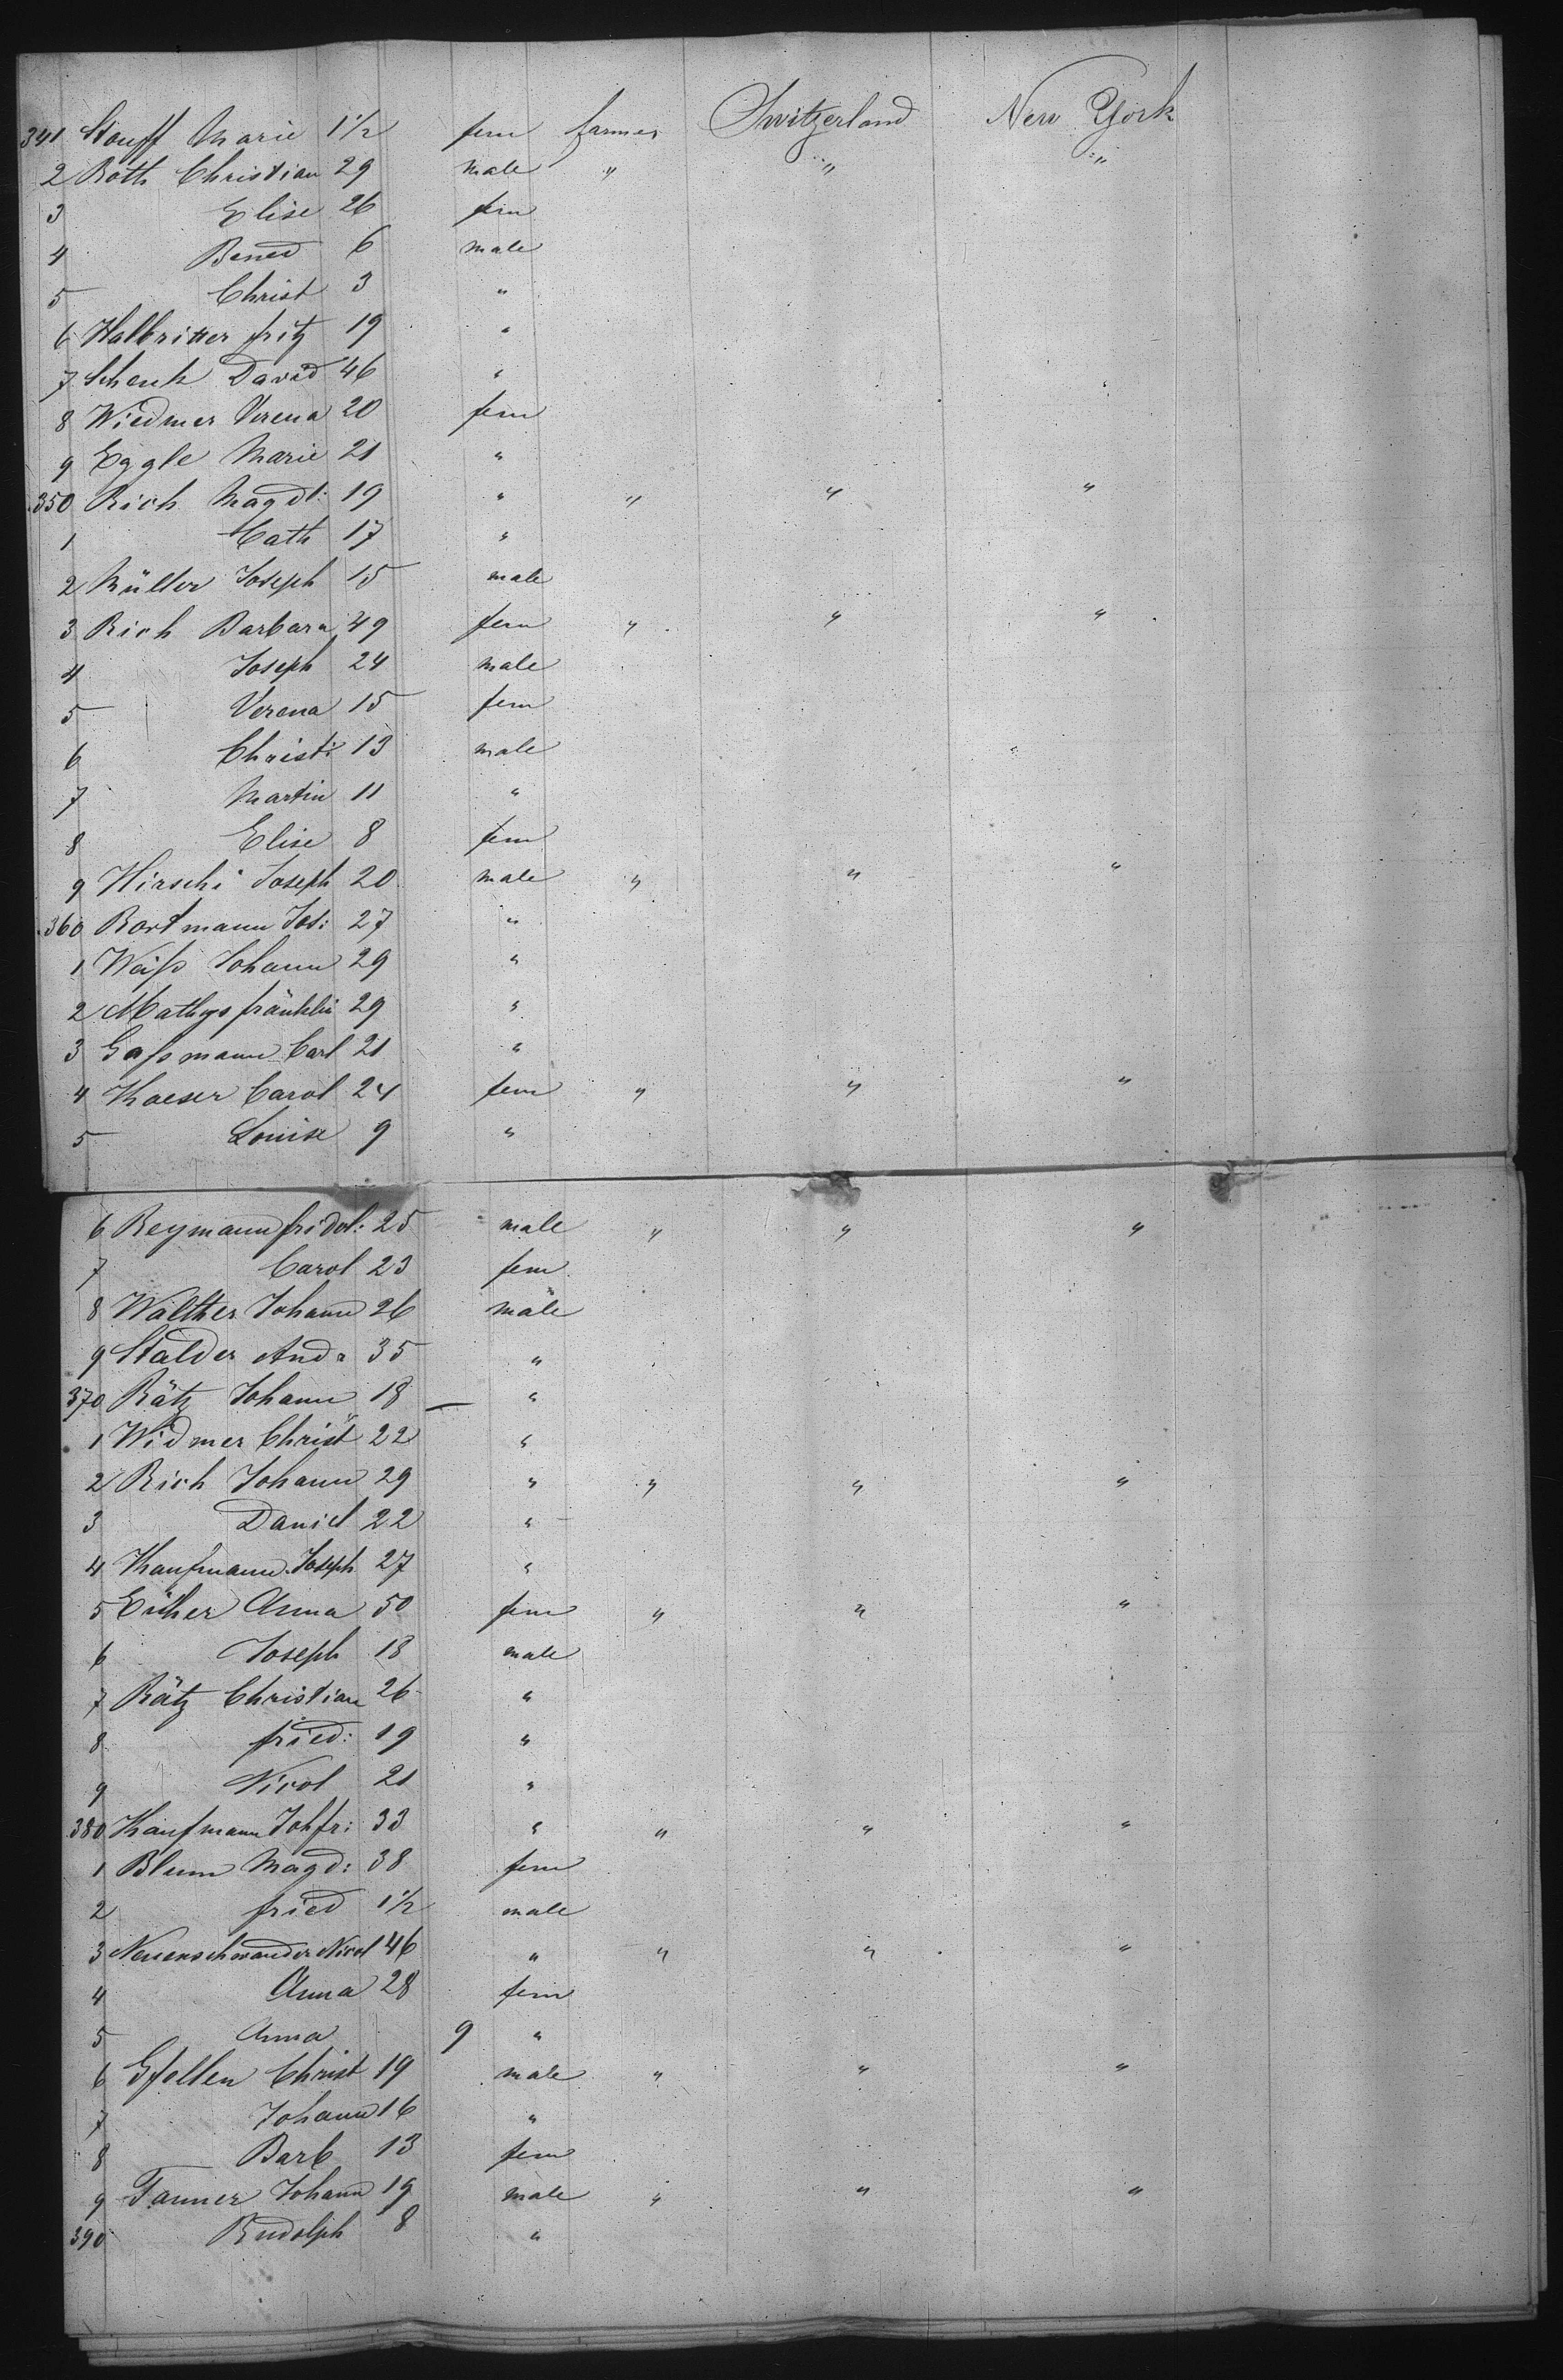 341 Stouff Marie 1½ fem farmer Switzerland New York
2 Roth Christian 29 male " " "
3 Elise 26 fem
4 Bened 6 male
5 Christ 3 "
6 Halbritter fritz 19 "
7 Schenk David 46 "
8 Wiedmer Verena 20 fem
9 Eggle Marie 21 "
350 Rich Magdl: 19 " " " "
1 Cath 17 "
2 Müller Joseph 15 male
3 Rich Barbara 49 fem " " "
4 Joseph 24 male
5 Verena 15 fem
6 Christ: 13 male
7 Martin 11 "
8 Elise 8 fem
9 Hirschi Joseph 20 male " " "
360 Bortmann Jos: 27 "
1 Weiß Johann 29 "
2 Mathys 29 "
3 Gaßmann Carl 21 "
4 Kaeser Carol 24 fem " " "
5 Louise 9 "
6 Reymann fridol: 25 male " " "
7 Carol 23 fem
8 Walther Johann 26 male
9 Stalder And 35 "
370 Rätz Johann 18 — "
1 Widmer Christ 22 "
2 Rich Johann 29 " " " "
3 Daniel 22 "
4 Kaufmann Joseph 27 "
5 Anna 50 fem " " "
6 Joseph 18 male
7 Rätz Christian 26 "
8 fried: 19 "
9 Nicol 21 "
380 Kaufmann Joh fr: 33 " " " "
1 Blum Magd: 38 fem
2 fried 1½ male
3 Neuenschwander Nicol 46 " " " "
4 Anna 28 fem
5 Anna 9 "
6 Gfellen Christ 19 male " " "
7 Johann 16 "
8 Barb 13 fem
9 Tanner Johann 19 male " " "
390 Rudolph 8 "